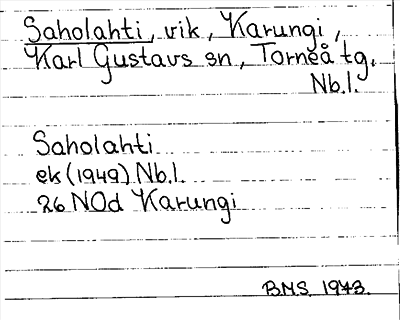 Saholahti, vik, Karungi,
Karl Gustavs sn, Torneå tg.
Nb.l.
Saholahti
ek (1949) Nb.l.
26 NOd Karungi
BMS. 1973.